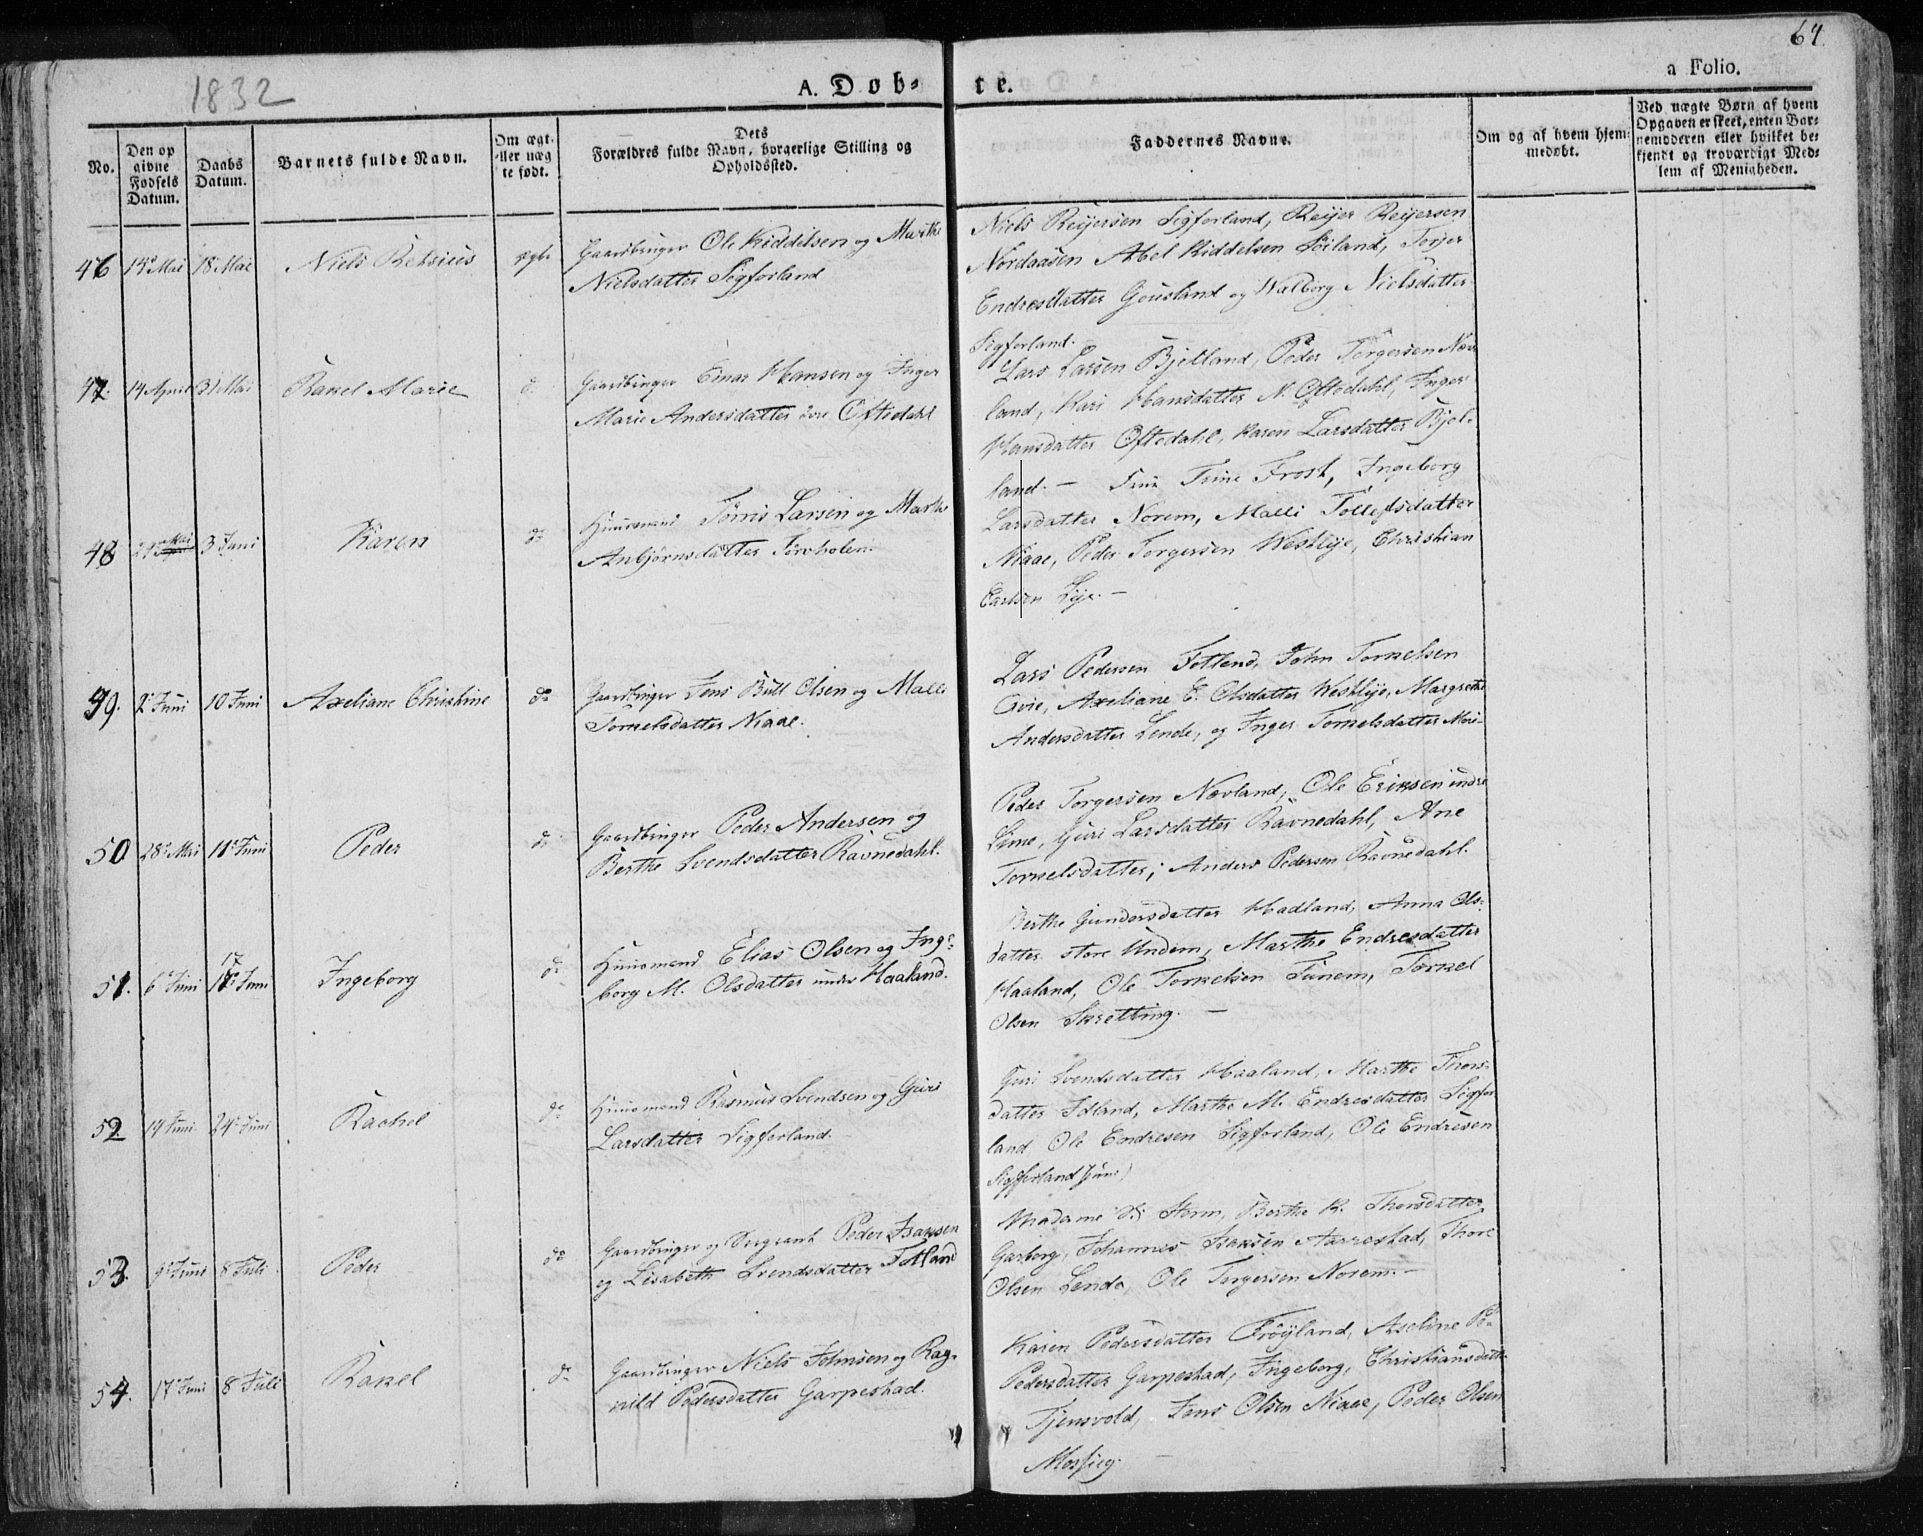 64.
a Folio.
1832
A. Døb-
te.
No.
Den op
givne
Fødsels
Datum.
Daabs
Datum.
Barnets fulde Navn.
Om ægt-
eller uæg
te født.
Dets
Forældres fulde Navn, borgerlige Stilling og
Opholdssted.
Faddernes Navne.
Om og af hvem hjem-
medøbt.
Ved uægte Børn af hvem
Opgaven er skeet, enten Bar-
nemoderen eller hvilket be-
kjendt og troværdigt Med-
lem af Menigheden.
46 14 Mai 18 Mai Niels Retsius ægte Gaardbruger Ole Kiddelsen og Marthe
Nielsdatter Sigforland
Niels Reijersen Sigforland, Reijer Reijersen
Nordaasen Abel Kiddelsen Soiland, Torjer
Endresdatter Gousland og Walborg Nielsdatter
Sigforland.
47. 14 April 31 Mai Rakel Marie d. Gaardbruger Einar Hansen og Inger
Marie Andersdatter Oftedahl
Lars Larsen Bjelland, Peder Torgersen Næv
land, Kari Hansdatter N. Oftedahl, Inger
Hansdatter Oftedahl, Karen Larsdatter Bjel-
land. –
48 Mai 3 Juni Karen do Huusmand Tørris Larsen og Marthe
Anbjørnsdatter Torvholen.
Trine Frost, Ingeborg
Larsdatter Norem, Malli Tollefsdatter
Niaae, Peder Torgersen Westlye, Christian
Carlsen Lye. –
49. 2 Juni 10 Juni Axeliane Christine do Gaardbruger Jens Bull Olsen og Malle
Torkelsdatter Niaae.
Lars Pedersen Fotland, John Torkelsen
Qvie, Axeliane E. Olsdatter Westlye, Margrethe
Andersdatter Lende, og Inger Torkelsdatter
50 28 Mai 11 Juni Peder do Gaardbruger Peder Andersen og
Berthe Svendsdatter Ravnedahl.
Peder Torgersen Nævland, Ole Eriksen indre
Lime, Guri Larsdatter Ravnedahl, Ane
Torkelsdatter; Anders Pedersen Ravnedahl.
51. 6 Juni 17 Juni Ingeborg do Huusmand Elias Olsen og Inge-
borg M. Olsdatter under Haaland.
Berthe Gundersdatter Hadland, Anna Ols-
datter store Undem, Marthe Endresdatter
Haaland, Ole Torkelsen Tunem, Torkel
Olsen Skretting. –
52 14 Juni 24 Juni Rachel do Huusmand Rasmus Svendsen og Guri
Larsdatter Sigforland
Guri Svendsdatter Haaland, Marthe Thors-
datter Idland, Marthe M. Endresdatter Sigfor
land Ole Endresen Sigforland, Ole Endresen
Sigforland (jun:)
53. 9 Juni 8 Juli Peder do Gaardbruger og Sergeant Peder Isaksen
og Lisabeth Svendsdatter Fotland
Madame Storm, Berthe K. Thorsdatter
Garborg, Johannes Isaksen Aarrestad, Thore
Olsen Lende, Ole Torgersen Norem. –
54. 17 Juni 8 Juli Rakel do Gaardbruger Niels Johnsen og Rag-
nild Pedersdatter Garpestad.
Karen Pedersdatter Frøyland, Axeline
Pedersdatter Garpestad, Ingeborg, Christiansdatter
Tjensvold, Jens Olsen Niaae, Peder Olsen
Mossieg.